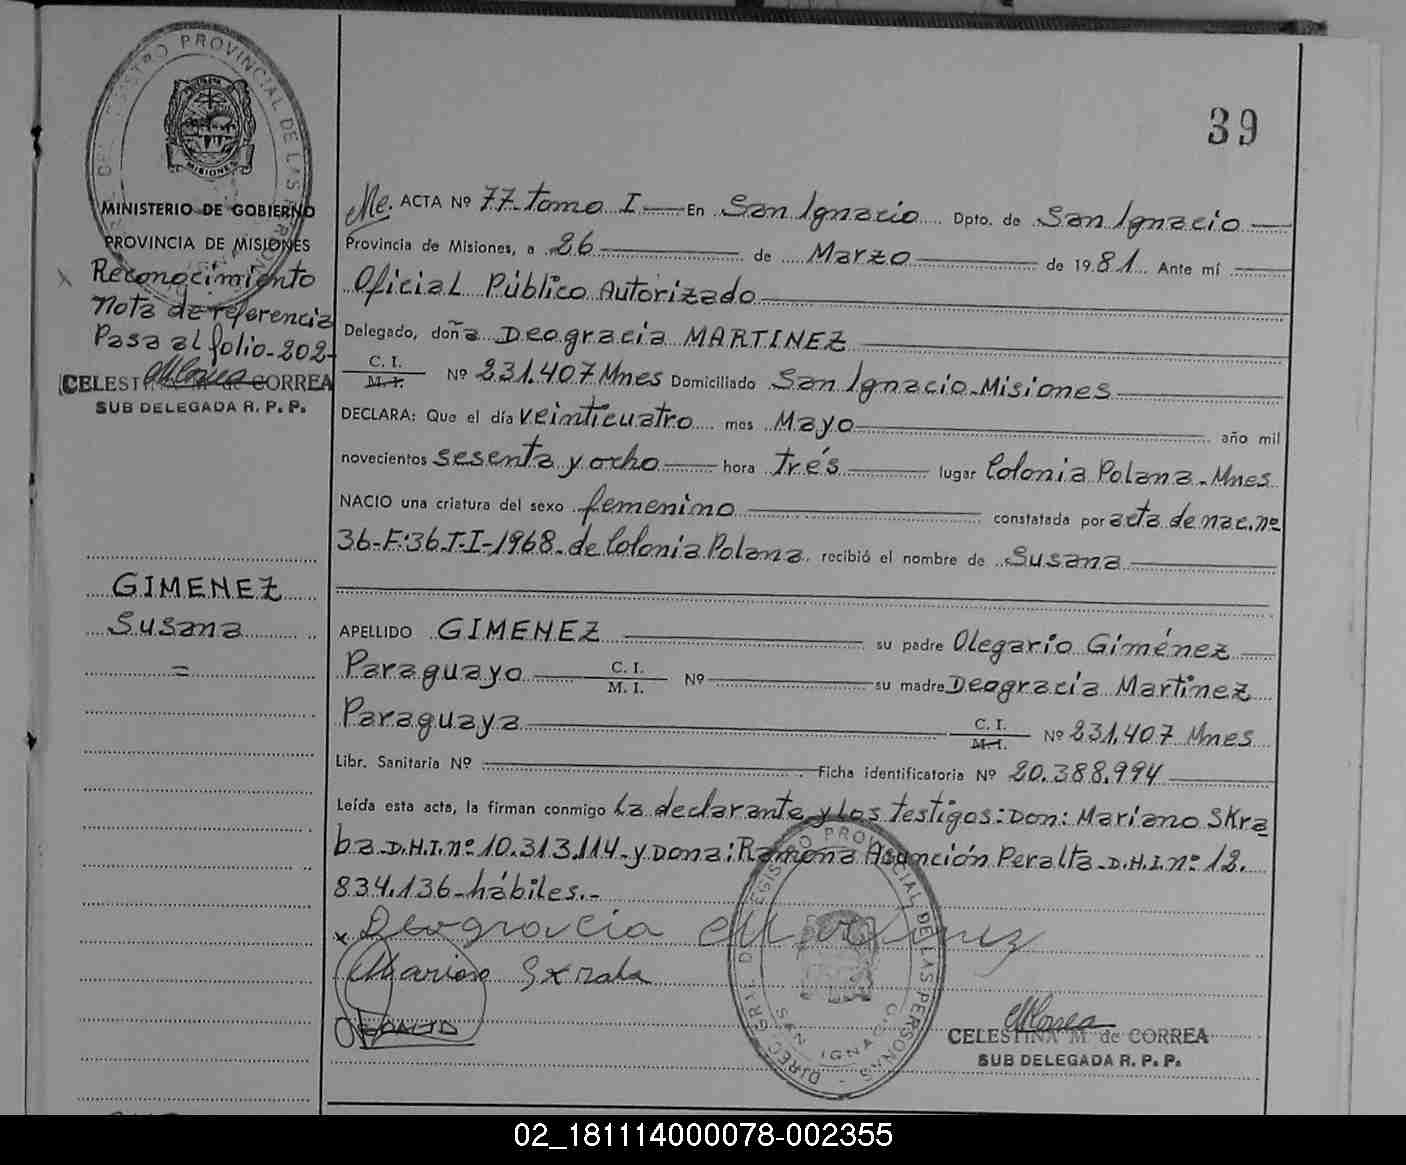 39
DEL REGISTRO PROVINCIAL DE LAS
MISIONES
MINISTERIO DE GOBIERNO
PROVINCIA DE MISIONES
Reconocimiento
Nota de referencia
Pasa al folio-202-
CELESTINA M. de CORREA
SUB DELEGADA R. P. P.
GIMENEZ
Susana
=
Me. ACTA Nº 77-tomo I — En San Ignacio Dpto. de San Ignacio —
Provincia de Misiones, a 26 — de Marzo — de 1981. Ante mí —
Oficial Público Autorizado —
Delegado, doña Deogracia MARTINEZ —
C. I.
M. I. Nº 231.407 Mnes Domiciliado San Ignacio-Misiones —
DECLARA: Que el día veinticuatro mes Mayo — año mil
novecientos sesenta y ocho — hora trés — lugar Colonia Polana-Mnes
NACIO una criatura del sexo femenino — constatada por acta de nac.nº
36-F:36.T-I-1968-de Colonia Polana. recibió el nombre de Susana —
APELLIDO GIMENEZ — su padre Olegario Giménez —
Paraguayo — C. I.
M. I. Nº — su madre Deogracia Martinez
Paraguaya — C. I.
M. I. Nº 231.407 Mnes
Libr. Sanitaria Nº — Ficha identificatoria Nº 20.388.994 —
Leída esta acta, la firman conmigo la declarante y los testigos: Don: Mariano Skra
ba-D.N.I.nº 10.313.114-y Dona: Ramona Asunción Peralta-D.N.I.nº 12.
834.136-hábiles.-
x Deogracia Martinez
Mariano
DIREC. GRAL. DEL REGISTRO PROVINCIAL DE LAS PERSONAS
SAN IGNACIO
CELESTINA M de CORREA
SUB DELEGADA R. P. P.
02_181114000078-002355